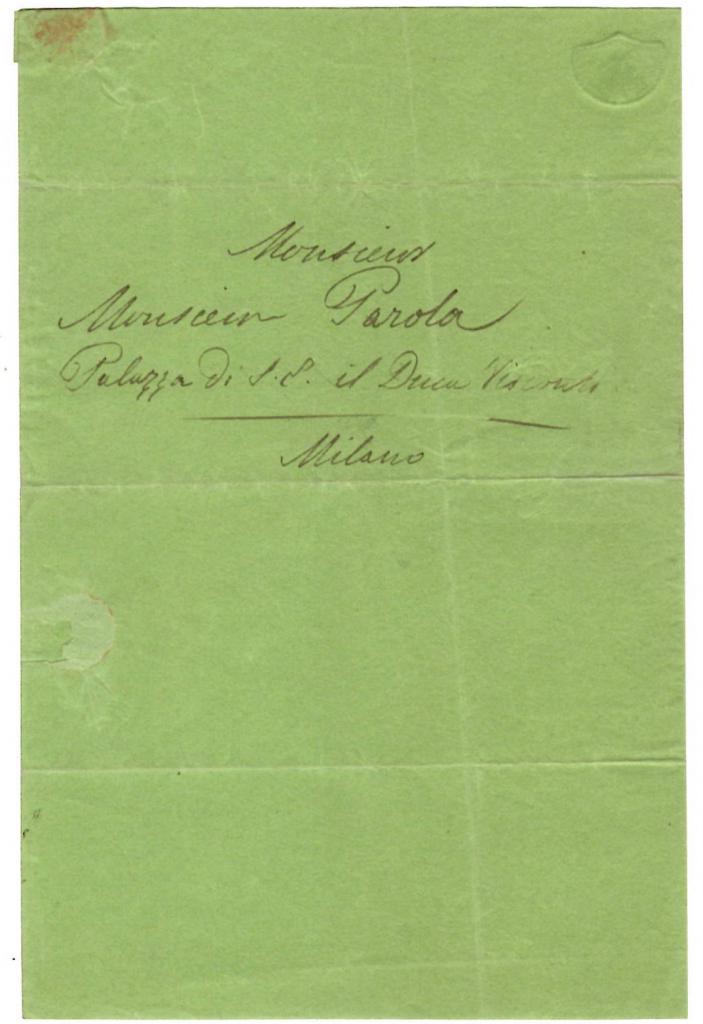 Monsieur
Monsieur Parola
Palazzo di S. E. il Duca Visconti
Milano